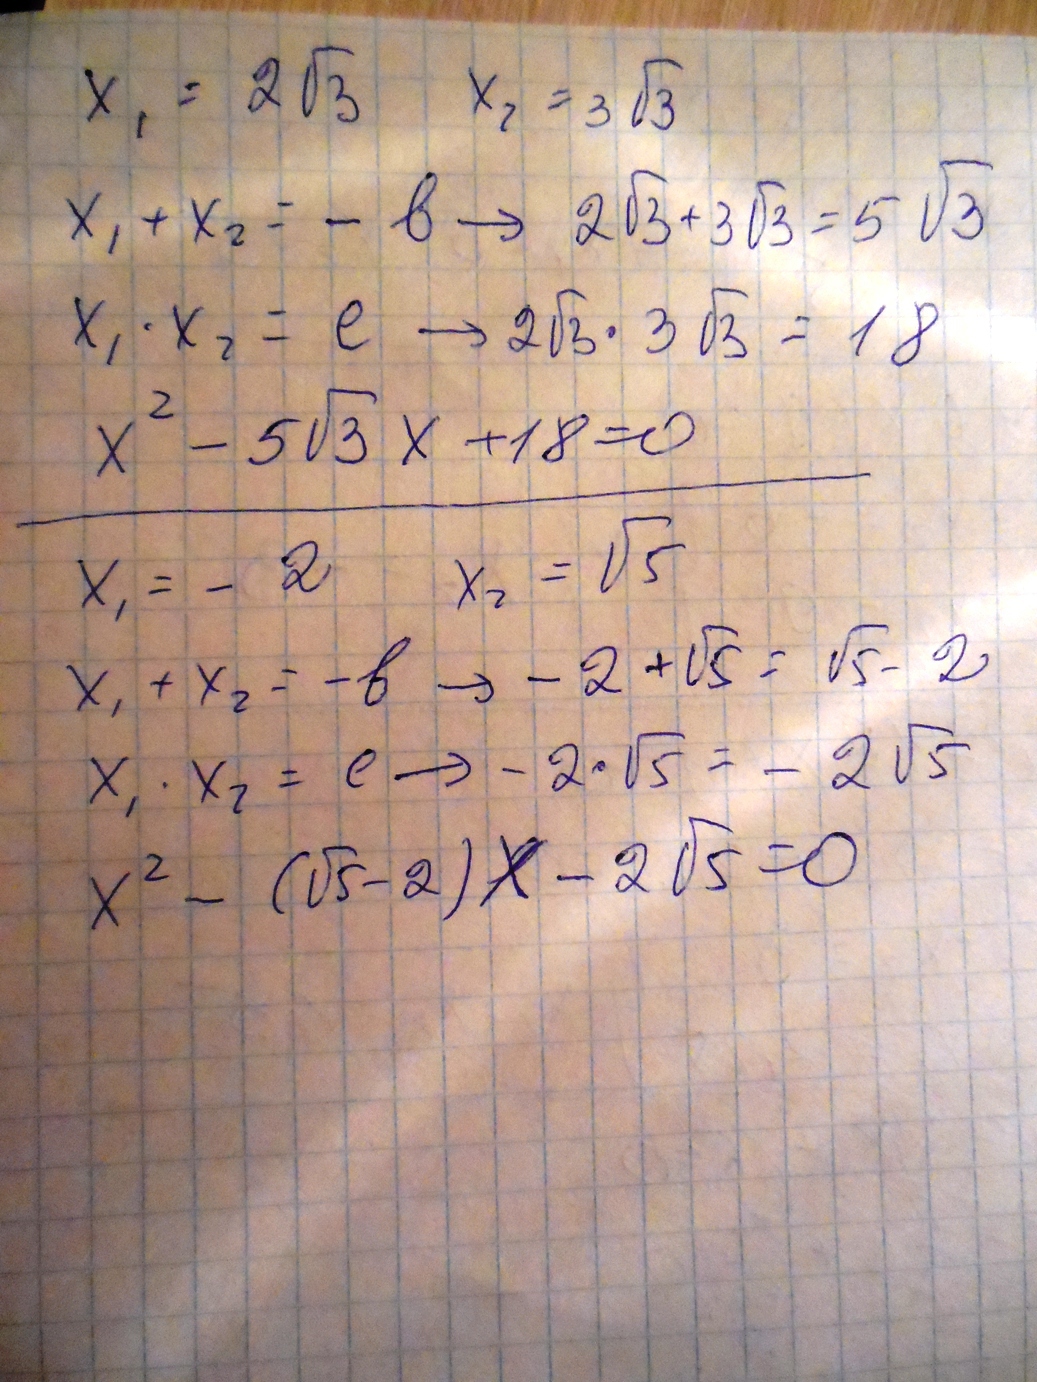 x₁ = 2√3 x₂ = 3√3
x₁ + x₂ = - b → 2√3 + 3√3 = 5√3
x₁ · x₂ = c → 2√3 · 3√3 = 18
x² - 5√3 x + 18 = 0
x₁ = - 2 x₂ = √5
x₁ + x₂ = - b → - 2 + √5 = √5 - 2
x₁ · x₂ = c → - 2 · √5 = - 2√5
x² - (√5 - 2) x - 2√5 = 0